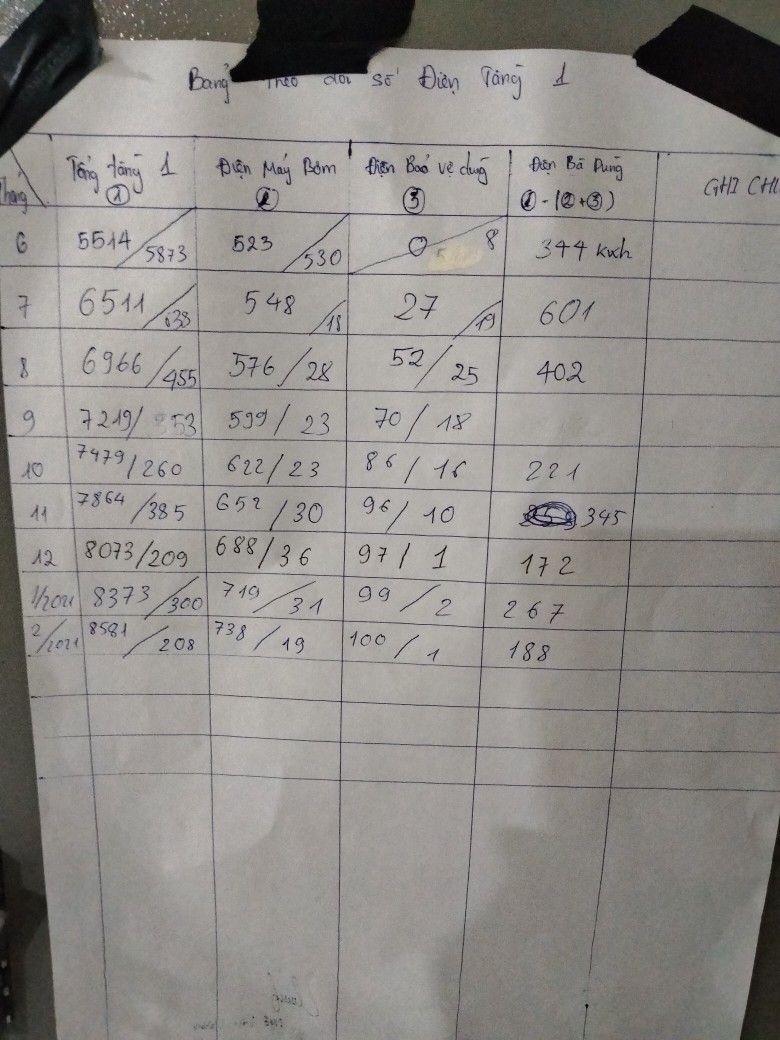 Bảng Theo dõi số Điện Tầng 1
Tháng Tổng tầng 1 ① Điện Máy Bơm ② Điện Bảo vệ dùng ③ Điện Bà Dung ①-(②+③) GHI CHÚ
6 5514/5873 523/530 0 8 344 kwh
7 6511/638 548/18 27/19 601
8 6966/455 576/28 52/25 402
9 7219/353 599/23 70/18
10 7479/260 622/23 86/16 221
11 7864/385 652/30 96/10 345
12 8073/209 688/36 97/1 172
1/2021 8373/300 719/31 99/2 267
2/2021 8581/208 738/19 100/1 188